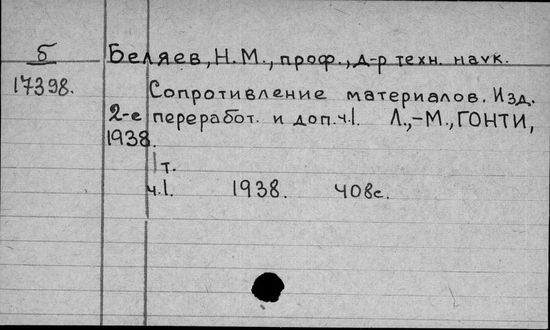 Б Беляев, Н. М., проф., д-р техн. наук.
17398.
Сопротивление материалов. Изд.
2-е переработ. и доп. ч. I. Л,-М., ГОНТИ,
1938.
1 т.
ч. I. 1938. 408с.